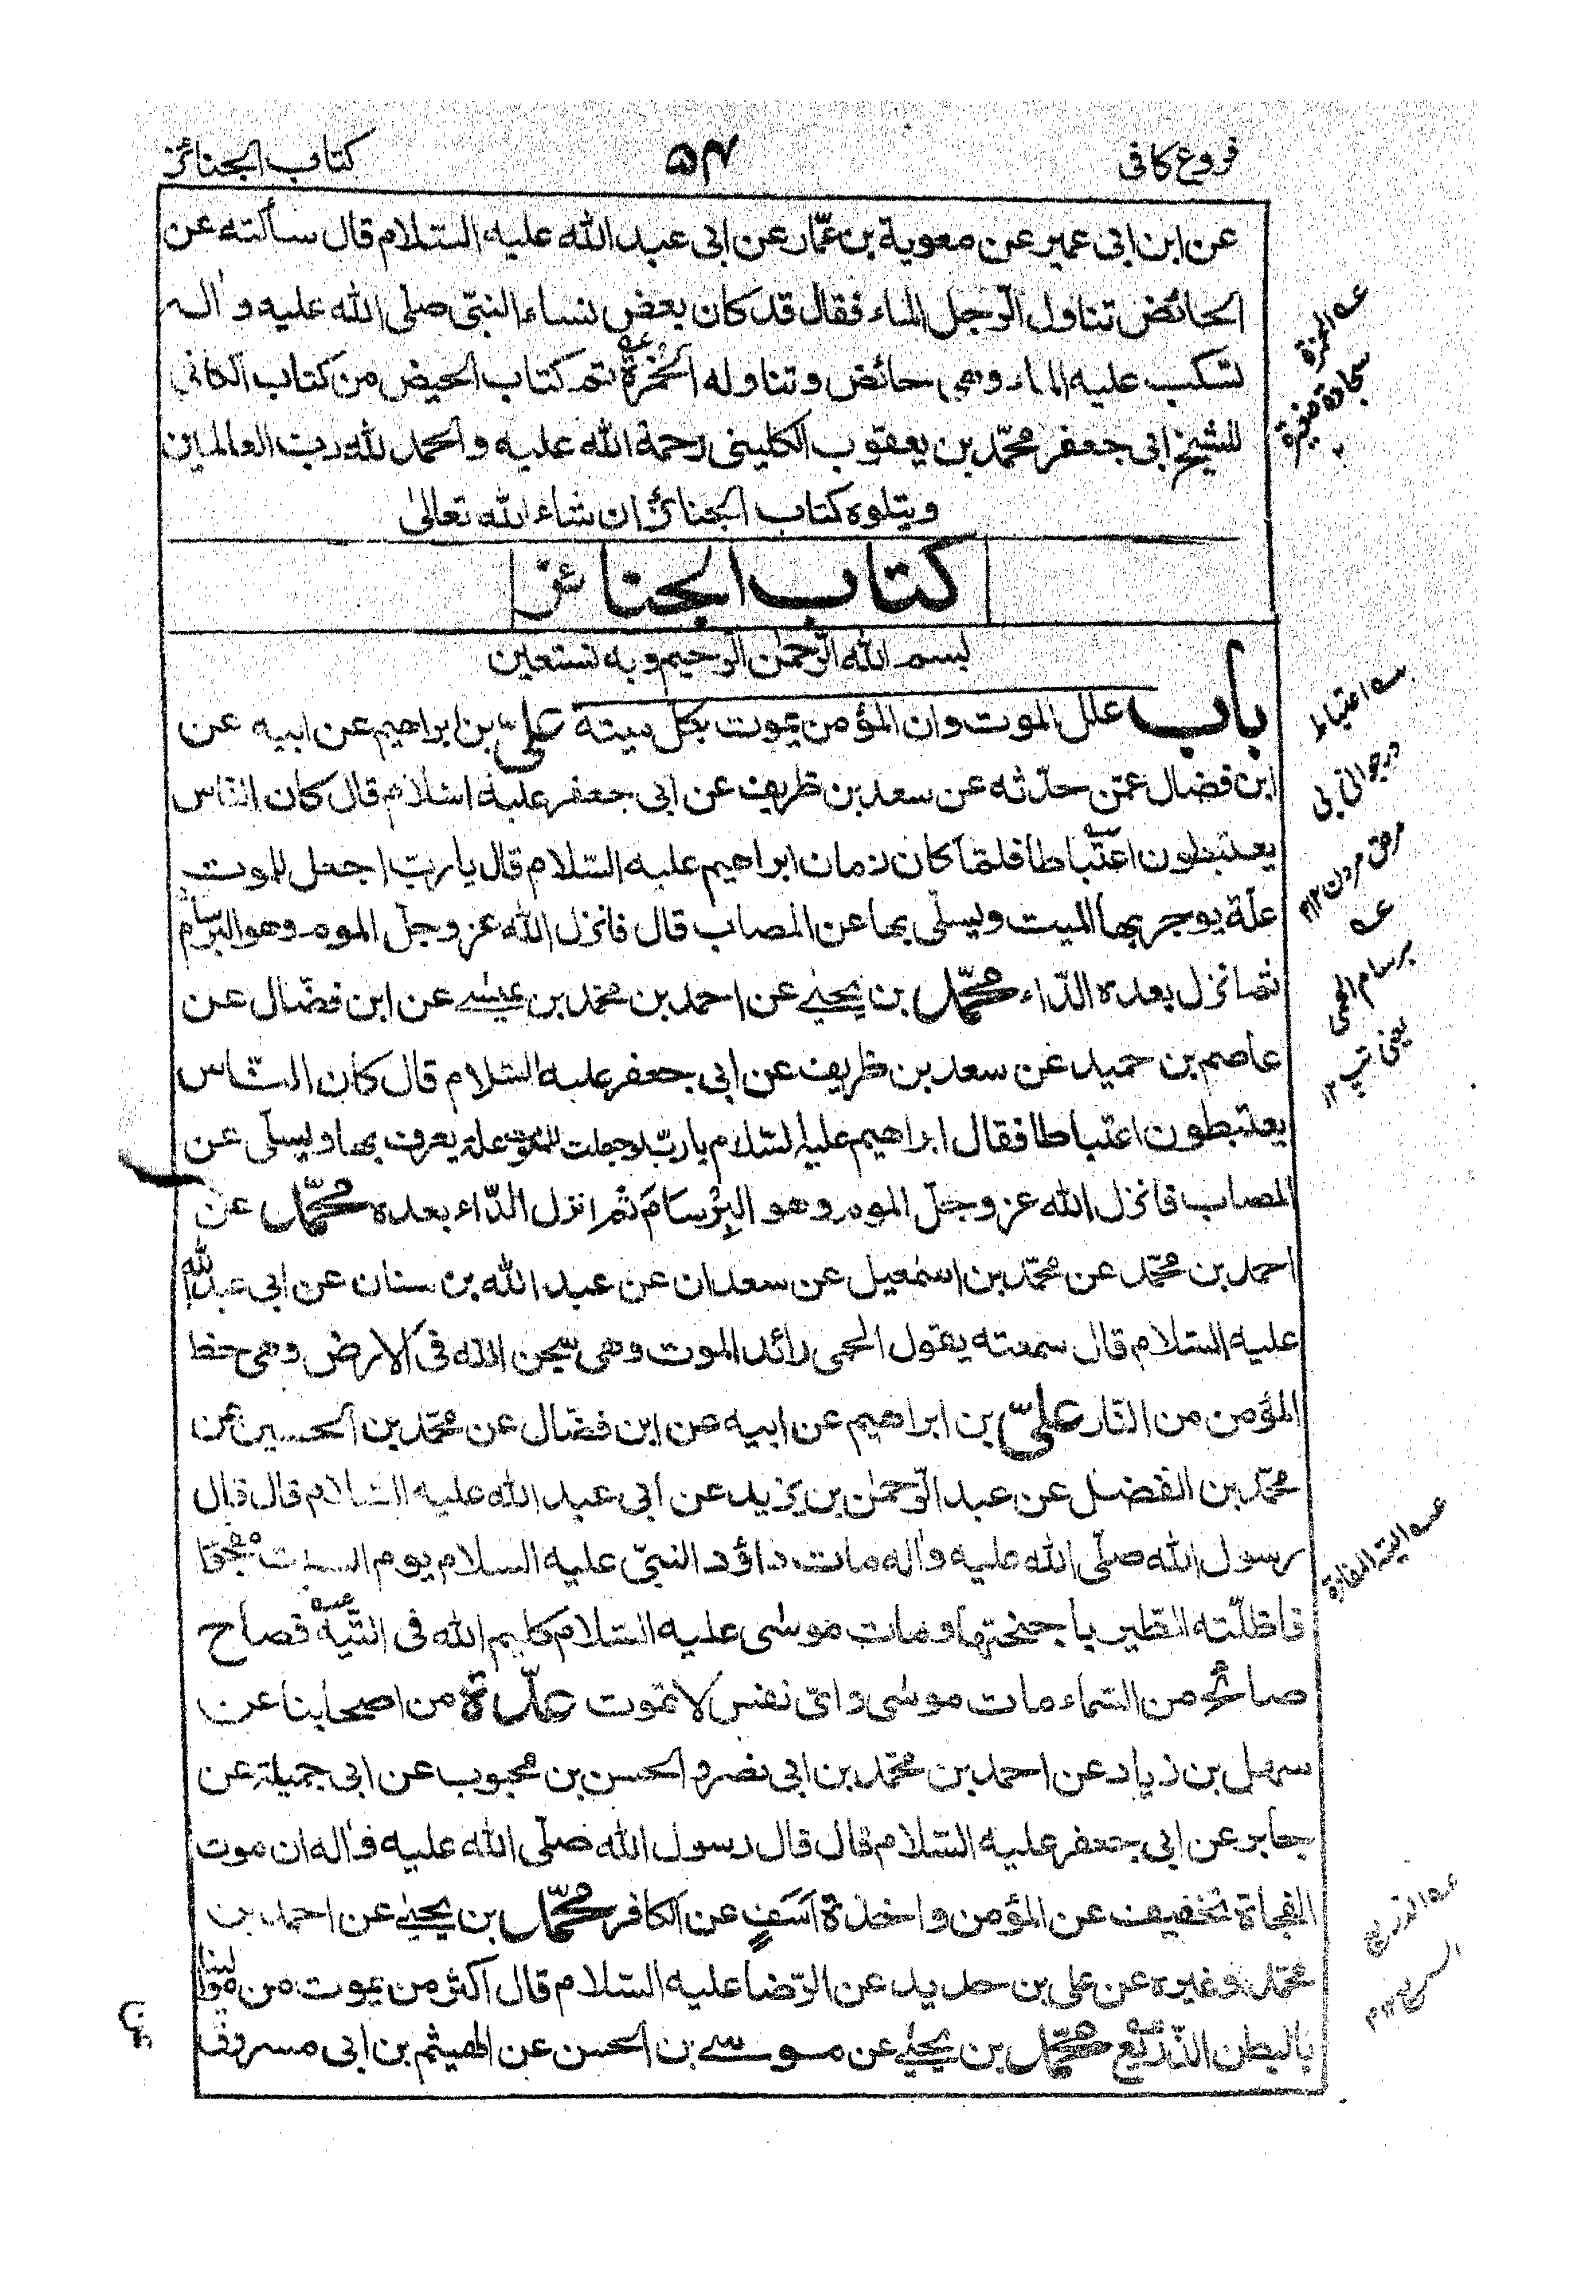 فروع كافى
۵۴
كتاب الجنائز
عن ابن ابى عمير عن معوية بن عمّار عن ابى عبد الله عليه السّلام قال سألته عن
الحائض تناول الرّجل الماء فقال قد كان بعض نساء النبىّ صلّى الله عليه و اٰله
تسكب عليه الماء وهى حائض وتناوله الخُمْرة تم كتاب الحيض من كتاب الكافى
للشيخ ابى جعفر محمّد بن يعقوب الكلينى رحمة الله عليه والحمد لله ربّ العالمين
ويتلوه كتاب الجنائز ان شاء الله تعالىٰ
كتاب الجنائز
بسم الله الرّحمٰن الرّحيم وبه نستعين
باب علل الموت وان المؤمن يموت بكل ميتة علىّ بن ابراهيم عن ابيه عن
ابن فضال عمّن حدّثه عن سعد بن ظريف عن ابى جعفر عليه السّلام قال كان النّاس
يعتبطون اعتباطا فلمّا كان زمان ابراهيم عليه السّلام قال يا ربّ اجعل للموت
علّة يوجر بها الميت ويسلّى بها عن المصاب قال فانزل الله عز وجلّ الموم وهو البرسام
ثم انزل بعده الدّاء محمّد بن يحيىٰ عن احمد بن محمّد بن عيسىٰ عن ابن فضّال عن
عاصم بن حميد عن سعد بن ظريف عن ابى جعفر عليه السّلام قال كان النّاس
يعتبطون اعتباطا فقال ابراهيم عليه السّلام يا ربّ لو جعلت للموت علة يعرف بها ويسلّى عن
المصاب فانزل الله عز وجلّ الموم وهو البِرْسَام ثُم انزل الدّاء بعده محمّد عن
احمد بن محمّد عن محمّد بن اسمٰعيل عن سعدان عن عبد الله بن سنان عن ابى عبد الله
عليه السّلام قال سمعته يقول الحمى رائد الموت وهى سجن الله فى الارض وهى حظ
المؤمن من النّار علىّ بن ابراهيم عن ابيه عن ابن فضّال عن محمّد بن الحسين عن
محمّد بن الفضيل عن عبد الرّحمٰن بن يزيد عن ابى عبد الله عليه السّلام قال قال
رسول الله صلّى الله عليه واٰله مات داؤد النبىّ عليه السلام يوم السبت مفجوّا
فاظلّته الطّير باجنحتها ومات موسٰى عليه السّلام كليم الله فى التّيه فصاح
صائح من السّماء مات موسٰى واىّ نفس لا تموت عدّة من اصحابنا عن
سهل بن زياد عن احمد بن محمّد بن ابى نصر و الحسن بن محبوب عن ابى جميلة عن
جابر عن ابى جعفر عليه السّلام قال قال رسول الله صلّى الله عليه واٰله ان موت
الفجاة تخفيف عن المؤمن واخذة اَسَفٍ عن الكافر محمّد بن يحيىٰ عن احمد بن
محمّد وغيره عن على بن حديد عن الرّضا عليه السّلام قال اكثر من يموت من موالينا
بالبطن الذّريع محمّد بن يحيىٰ عن موسى بن الحسن عن الهيثم بن ابى مسروق
سجادة صغيرة
برسام الحمى
يعنى تپ ۱۲